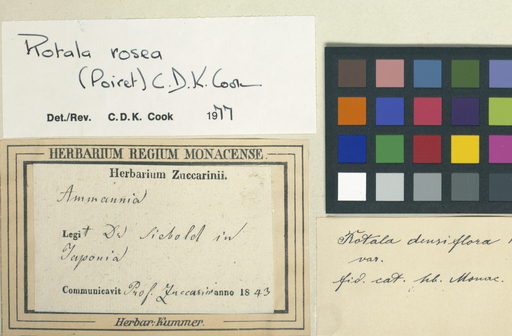 Rotala rosea
(Poiret) C.D.K. Cook
Det./Rev. C. D. K. Cook 1977
HERBARIUM REGIUM MONACENSE.
Herbarium Zuccarinii.
Ammannia
Legit Dr Siebold in
Japonia
Communicavit Prof. Zuccarini anno 1843
Herbar. Kummer.
Rotala densiflora
var.
fid. cat. hb. Monac.